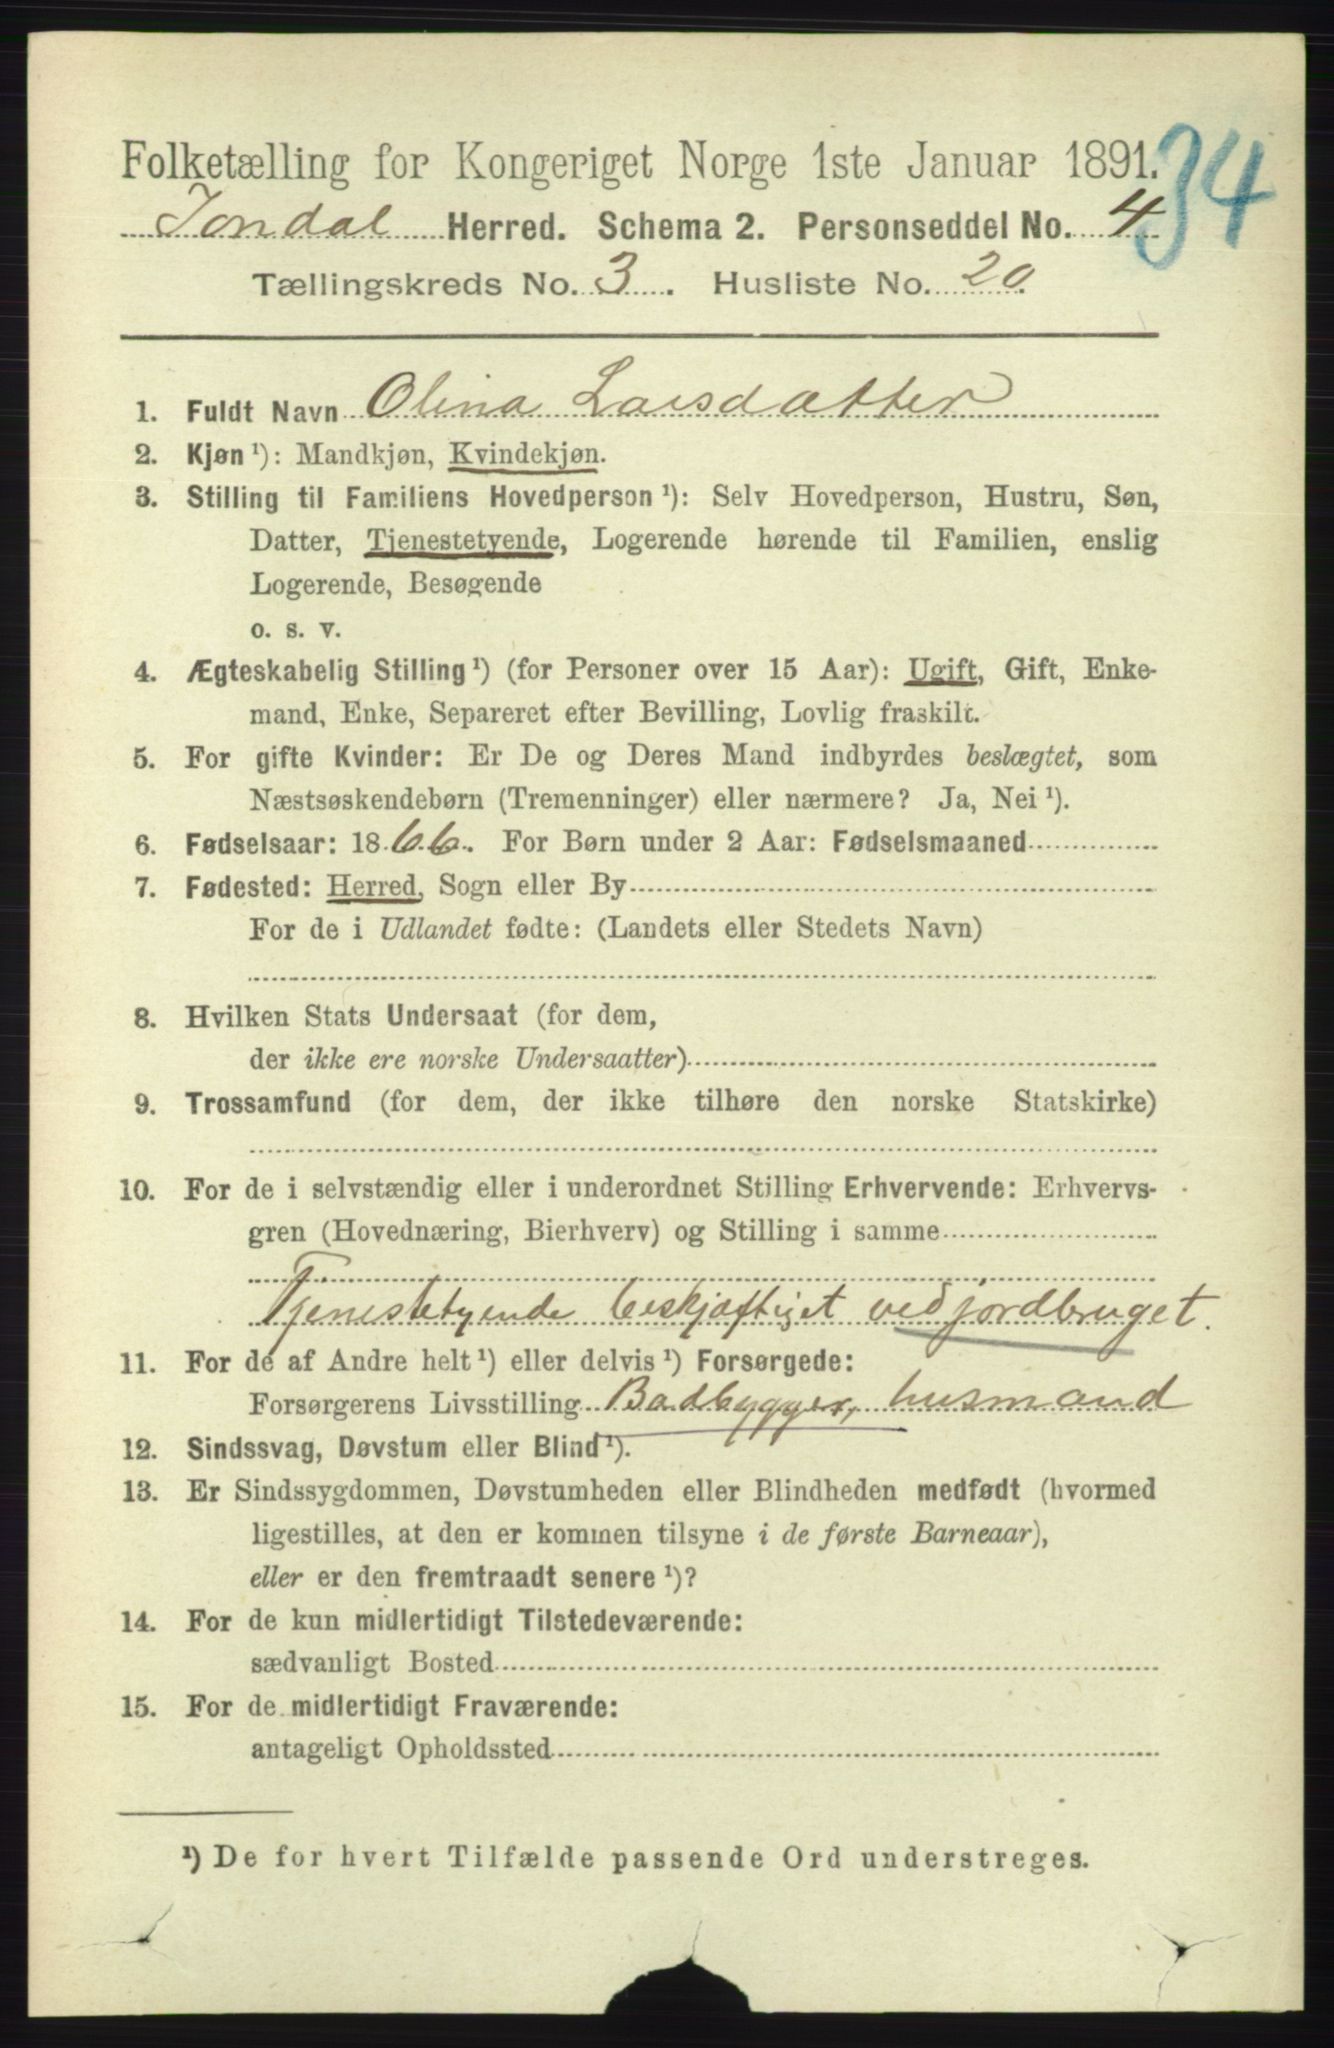 Folketælling for Kongeriget Norge 1ste Januar 1891.
34
Jondal Herred. Schema 2. Personseddel No. 4
Tællingskreds No. 3. Husliste No. 20
1. Fuldt Navn Olina Larsdatter
2. Kjøn ¹): Mandkjøn, Kvindekjøn.
3. Stilling til Familiens Hovedperson ¹): Selv Hovedperson, Hustru, Søn,
Datter, Tjenestetyende, Logerende hørende til Familien, enslig
Logerende, Besøgende
o. s. v.
4. Ægteskabelig Stilling ¹) (for Personer over 15 Aar): Ugift, Gift, Enke-
mand, Enke, Separeret efter Bevilling, Lovlig fraskilt.
5. For gifte Kvinder: Er De og Deres Mand indbyrdes beslægtet, som
Næstsøskendebørn (Tremenninger) eller nærmere? Ja, Nei ¹).
6. Fødselsaar: 1866. For Børn under 2 Aar: Fødselsmaaned
7. Fødested: Herred, Sogn eller By
For de i Udlandet fødte: (Landets eller Stedets Navn)
8. Hvilken Stats Undersaat (for dem,
der ikke ere norske Undersaatter)
9. Trossamfund (for dem, der ikke tilhøre den norske Statskirke)
10. For de i selvstændig eller i underordnet Stilling Erhvervende: Erhvervs-
gren (Hovednæring, Bierhverv) og Stilling i samme
Tjenestetyende beskjæftiget ved jordbruget.
11. For de af Andre helt ¹) eller delvis ¹) Forsørgede:
Forsørgerens Livsstilling Badbygger, husmand
12. Sindssvag, Døvstum eller Blind ¹).
13. Er Sindssygdommen, Døvstumheden eller Blindheden medfødt (hvormed
ligestilles, at den er kommen tilsyne i de første Barneaar),
eller er den fremtraadt senere ¹)?
14. For de kun midlertidigt Tilstedeværende:
sædvanligt Bosted
15. For de midlertidigt Fraværende:
antageligt Opholdssted
¹) De for hvert Tilfælde passende Ord understreges.